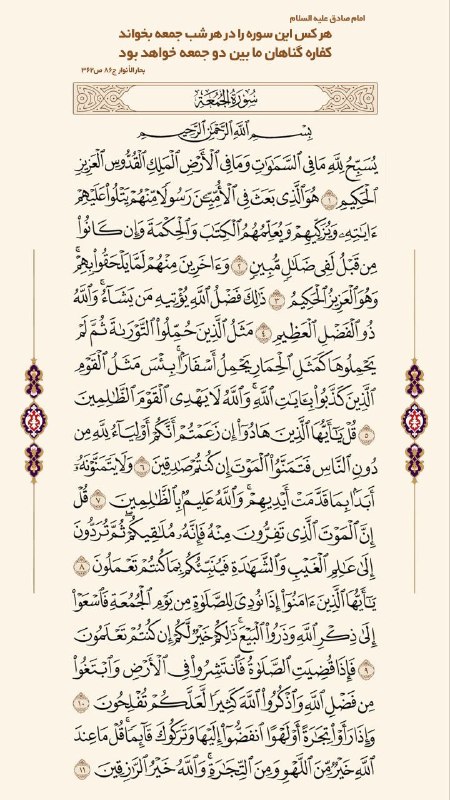 امام صادق علیه السلام
هر کس این سوره را در هر شب جمعه بخواند
کفاره گناهان ما بین دو جمعه خواهد بود
بحارالأنوار ج۸۶ ص۳۶۲
سُورَةُ الجُمُعَةِ
بِسْمِ اللَّهِ الرَّحْمَٰنِ الرَّحِيمِ
يُسَبِّحُ لِلَّهِ مَا فِي السَّمَٰوَٰتِ وَمَا فِي الْأَرْضِ الْمَلِكِ الْقُدُّوسِ الْعَزِيزِ
الْحَكِيمِ ۝١ هُوَ الَّذِي بَعَثَ فِي الْأُمِّيِّينَ رَسُولًا مِنْهُمْ يَتْلُوا عَلَيْهِمْ
ءَايَٰتِهِ وَيُزَكِّيهِمْ وَيُعَلِّمُهُمُ الْكِتَٰبَ وَالْحِكْمَةَ وَإِن كَانُوا
مِن قَبْلُ لَفِي ضَلَٰلٍ مُّبِينٍ ۝٢ وَءَاخَرِينَ مِنْهُمْ لَمَّا يَلْحَقُوا بِهِمْ
وَهُوَ الْعَزِيزُ الْحَكِيمُ ۝٣ ذَٰلِكَ فَضْلُ اللَّهِ يُؤْتِيهِ مَن يَشَاءُ وَاللَّهُ
ذُو الْفَضْلِ الْعَظِيمِ ۝٤ مَثَلُ الَّذِينَ حُمِّلُوا التَّوْرَىٰةَ ثُمَّ لَمْ
يَحْمِلُوهَا كَمَثَلِ الْحِمَارِ يَحْمِلُ أَسْفَارًا بِئْسَ مَثَلُ الْقَوْمِ
الَّذِينَ كَذَّبُوا بِـَٔايَٰتِ اللَّهِ وَاللَّهُ لَا يَهْدِي الْقَوْمَ الظَّٰلِمِينَ
۝٥ قُلْ يَٰأَيُّهَا الَّذِينَ هَادُوا إِن زَعَمْتُمْ أَنَّكُمْ أَوْلِيَاءُ لِلَّهِ مِن
دُونِ النَّاسِ فَتَمَنَّوُا الْمَوْتَ إِن كُنتُمْ صَٰدِقِينَ ۝٦ وَلَا يَتَمَنَّوْنَهُ
أَبَدًا بِمَا قَدَّمَتْ أَيْدِيهِمْ وَاللَّهُ عَلِيمٌ بِالظَّٰلِمِينَ ۝٧ قُلْ
إِنَّ الْمَوْتَ الَّذِي تَفِرُّونَ مِنْهُ فَإِنَّهُ مُلَٰقِيكُمْ ثُمَّ تُرَدُّونَ
إِلَىٰ عَٰلِمِ الْغَيْبِ وَالشَّهَٰدَةِ فَيُنَبِّئُكُم بِمَا كُنتُمْ تَعْمَلُونَ ۝٨
يَٰأَيُّهَا الَّذِينَ ءَامَنُوا إِذَا نُودِيَ لِلصَّلَوٰةِ مِن يَوْمِ الْجُمُعَةِ فَاسْعَوْا
إِلَىٰ ذِكْرِ اللَّهِ وَذَرُوا الْبَيْعَ ذَٰلِكُمْ خَيْرٌ لَّكُمْ إِن كُنتُمْ تَعْلَمُونَ
۝٩ فَإِذَا قُضِيَتِ الصَّلَوٰةُ فَانتَشِرُوا فِي الْأَرْضِ وَابْتَغُوا
مِن فَضْلِ اللَّهِ وَاذْكُرُوا اللَّهَ كَثِيرًا لَّعَلَّكُمْ تُفْلِحُونَ ۝١٠
وَإِذَا رَأَوْا تِجَٰرَةً أَوْ لَهْوًا انفَضُّوا إِلَيْهَا وَتَرَكُوكَ قَائِمًا قُلْ مَا عِندَ
اللَّهِ خَيْرٌ مِّنَ اللَّهْوِ وَمِنَ التِّجَٰرَةِ وَاللَّهُ خَيْرُ الرَّٰزِقِينَ ۝١١